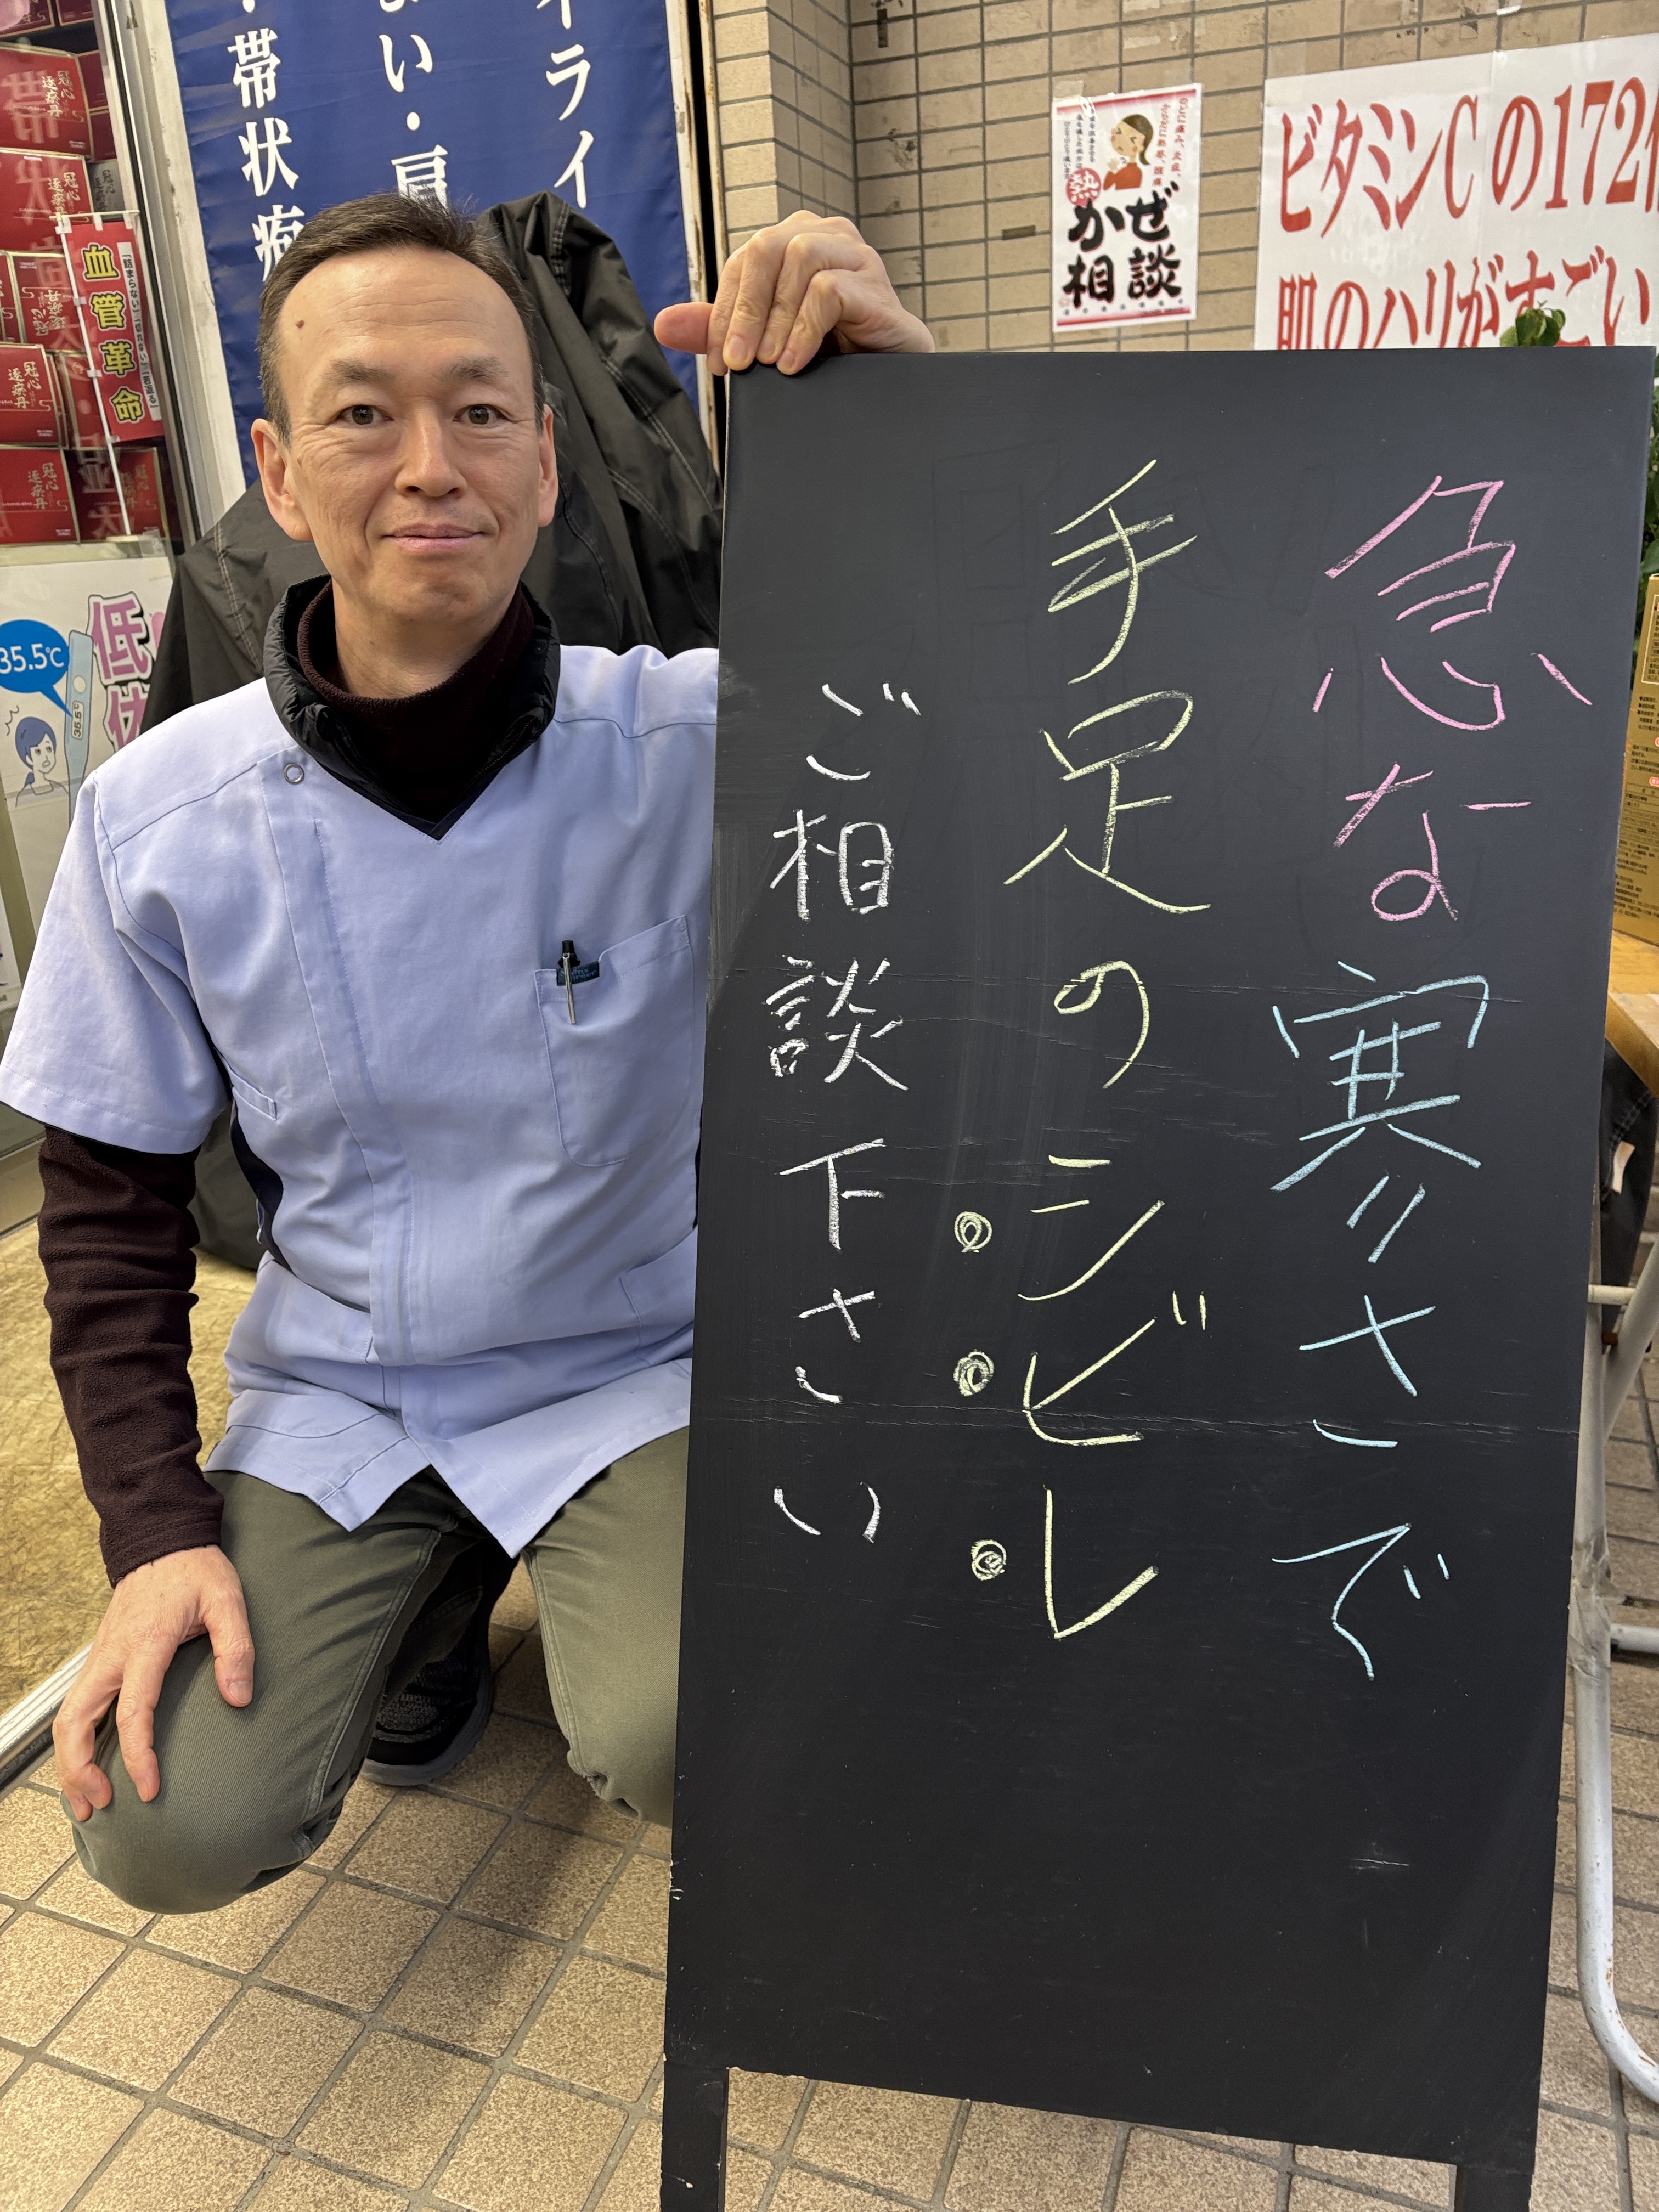 急な寒さで
手足のシビレ
ご相談下さい
イライ
い・肩
・帯状疱
ビタミンCの172
肌のハリがすごい
熱
かぜ
相談
血管革命
冠心
逐瘀丹
35.5℃
35.5℃
低
体